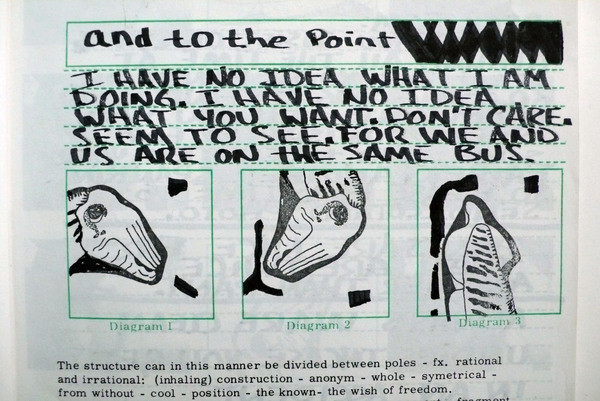 and to the Point
I HAVE NO IDEA WHAT I AM
DOING. I HAVE NO IDEA
WHAT YOU WANT. DON'T CARE.
SEEM TO SEE. FOR WE AND
US ARE ON THE SAME BUS.
Diagram 1 Diagram 2 Diagram 3
The structure can in this manner be divided between poles - fx. rational
and irrational: (inhaling) construction - anonym - whole - symetrical -
from without - cool - position - the known- the wish of freedom.
fragment